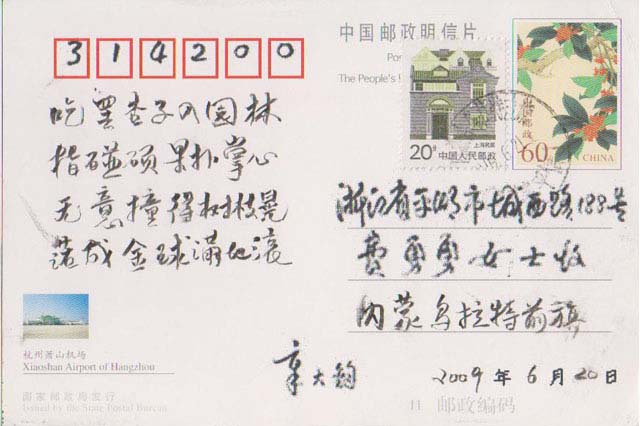 314200
中国邮政明信片
The People's
吃罢杏子入园林
指碰硕果扑掌心
无意撞得树枝晃
落成金球满地滚
20分
上海民居
中国人民邮政
中国邮政
60分
CHINA
浙江省平湖市城西路188号
费勇勇女士收
内蒙乌拉特前旗
章大钧
2009年6月20日
杭州萧山机场
Xiaoshan Airport of Hangzhou
国家邮政局发行
Issued by the State Postal Bureau
11 邮政编码